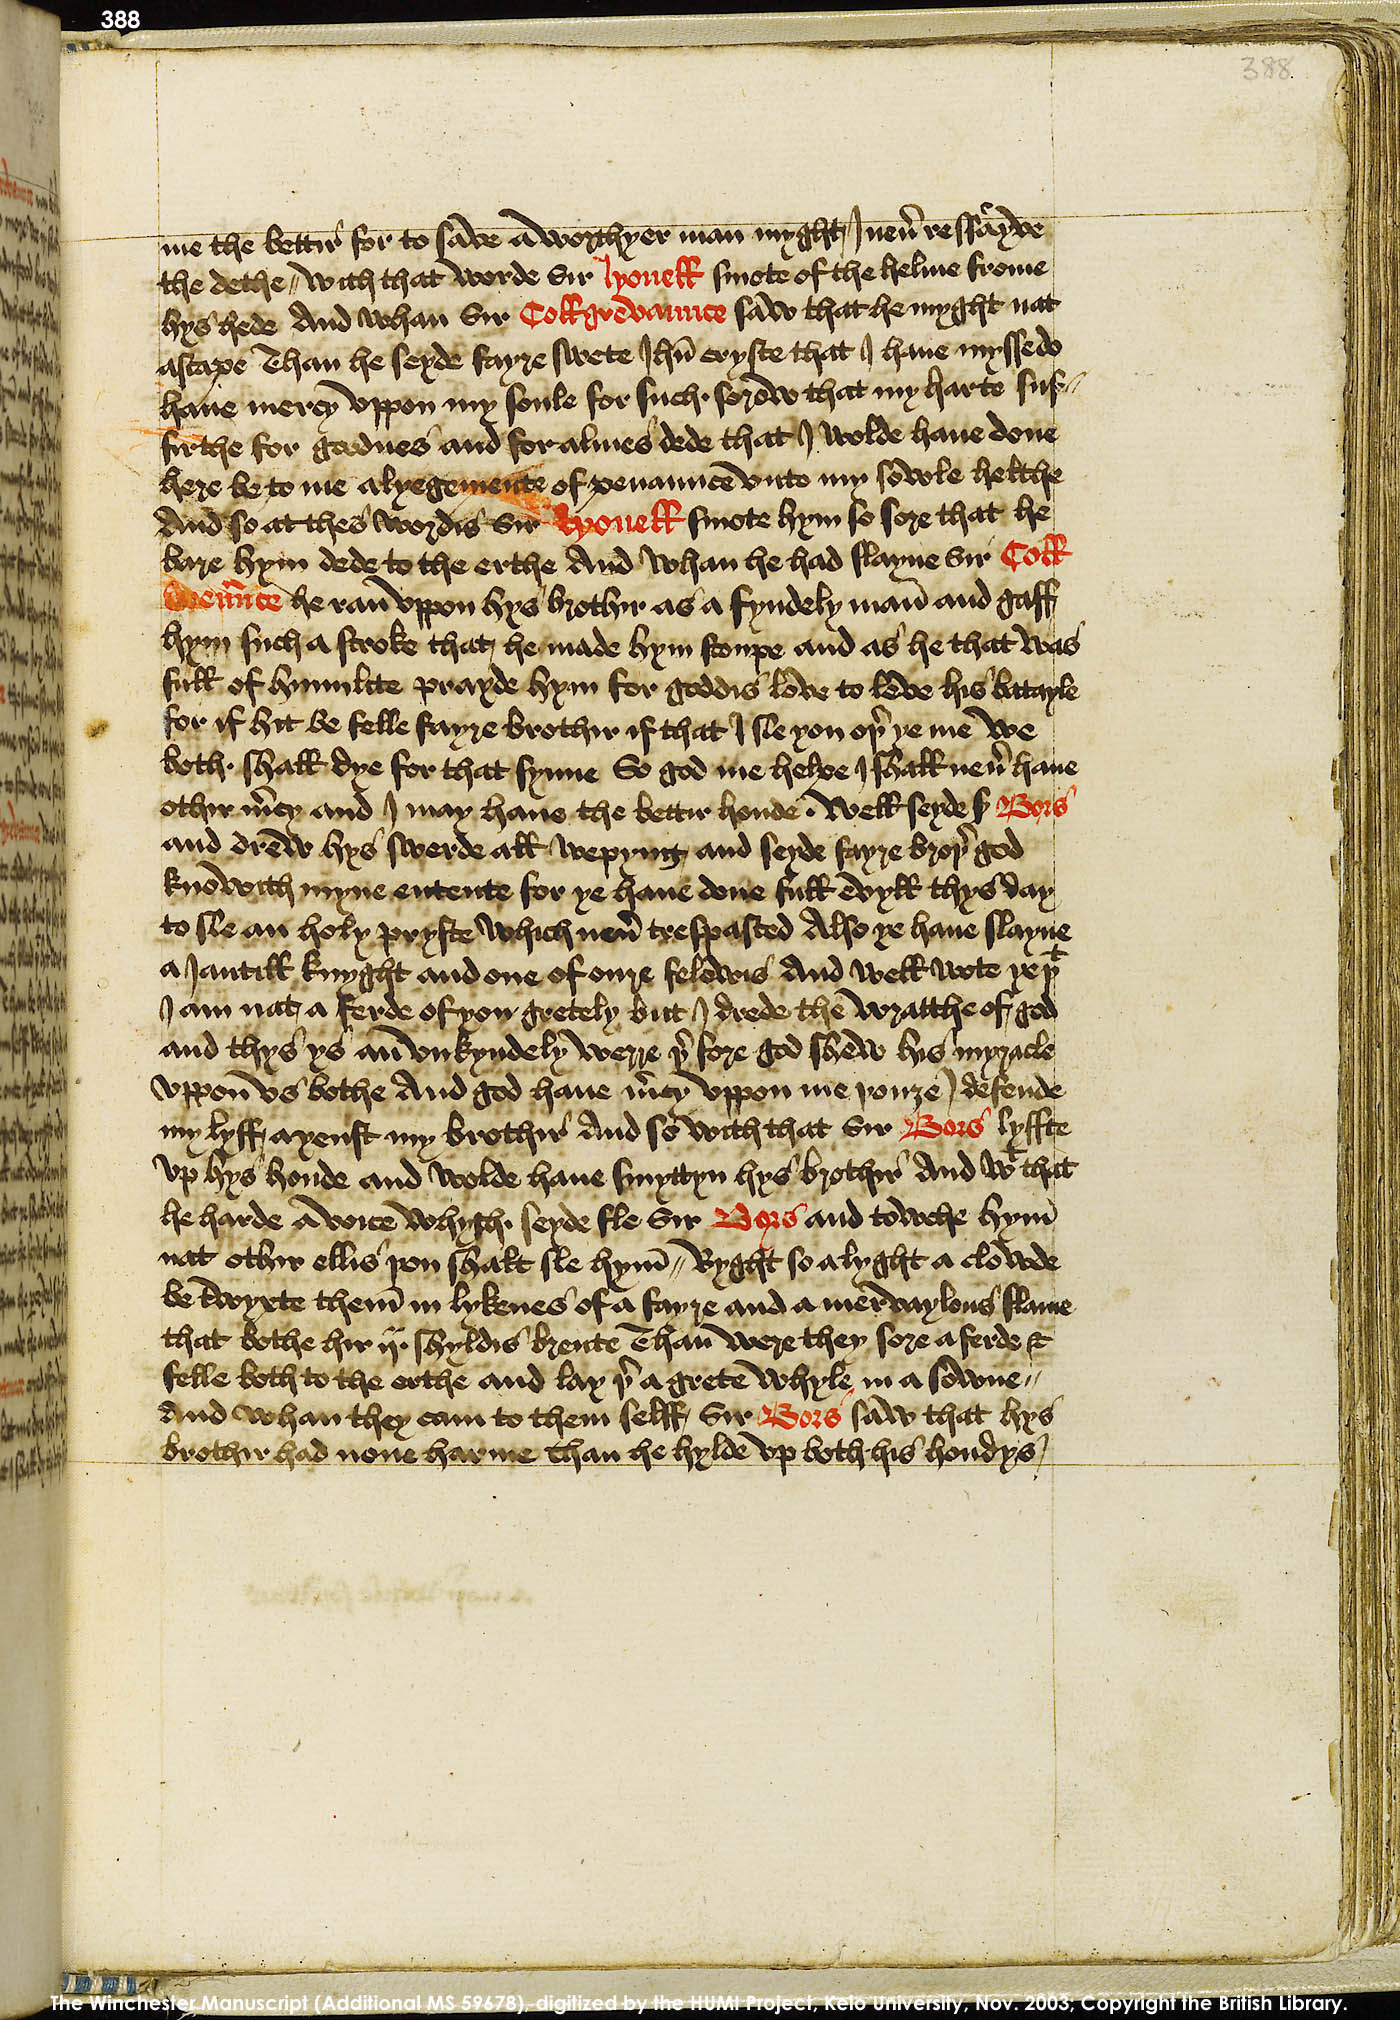 388
388
me the bettir for to save a worthyer man myght I neu̅ ressayve
the dethe // with that worde Sir Lyonell smote of the helme frome
hys hede And whan Sir Collgrevaunce saw that he myght nat
ascape Than he seyde fayre swete Jhū cryste that I haue myssedo
haue mercy vppon my soule for such sorow that my harte suf//
firthe for goodnes and for almes dede that I wolde haue done
here be to me alyegemente of penaunce vnto my sowle helthe
And so at thes wordis Sir Lyonell smote hym so sore that he
bare hym dede to the erthe And whan he had slayne Sir Coll
he ran vppon hys brothir as a fyndely man̄ and gaff
hym such a stroke that he made hym stoupe and as he that was
full of humilite prayde hym for goddis love to leve his batayle
for if hit be felle fayre brothir if that I sle you oþ̄ ye me we
both shall dye for that synne So god me helpe I shall neu̅ haue
othir m̅cy and I may haue the bettir honde . Well seyde sʳ Bors
and drew hys swerde all wepyng and seyde fayre broþ̄ god
knowith myne entente for ye haue done full evyll thys day
to sle an holy pryste which neu̅ trespasced Also ye haue slayne
a Jantill knyght and one of oure felowis And well wote ye þᵗ
I am nat a ferde of you gretely but I drede the wratthe of god
and thys ys an̄ vnkyndely werre þ̄ fore god shew his myracle
vppon̄ vs bothe And god haue m̅cy vppon me þouȝe I defende
my lyff ayenst my brothir And so with that Sir Bors lyffte
vp hys honde and wolde haue smyttyn hys brothir And wᵗ that
he harde a voice whych seyde fle Sir Bors and towche hym̄
nat othir ellis þou shalt sle hym̄ // Ryght so alyght a clowde
be twyxte them̄ in lykenes of a fayre and a mervaylous flame
that bothe hir ij. shyldis brente Than̄ were they sore aferde &
felle both to the erthe and lay þ̄ a grete whyle in a sowne //
And whan they cam to them selff Sir Bors saw that hys
brothir had none harme than he hylde vp both his hondys /
The Winchester Manuscript (Additional MS 59678), digitized by the HUMI Project, Keio University, Nov. 2003, Copyright the British Library.